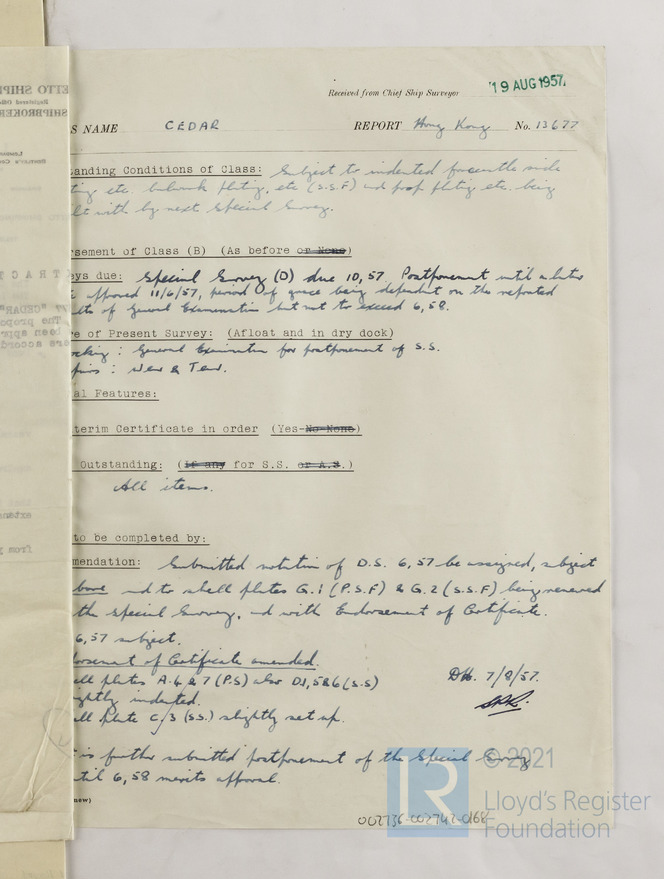 Received from Chief Ship Surveyor 19 AUG 1957
S NAME CEDAR REPORT Hong Kong No. 13677
anding Conditions of Class: Subject to indented forecastle side
ting etc. bulwark plating, etc (S.S.F) and poop plating etc. being
lt with by next Special Survey.
rsement of Class (B) (As before or None)
eys due: Special Survey (D) due 10,57. Postponement until a later
approved 11/6/57, period of grace being dependent on the reported
lts of General Examination but not to exceed 6,58.
re of Present Survey: (Afloat and in dry dock)
ocking: General Examination for postponement of S.S.
pairs: Wear & Tear.
al Features:
terim Certificate in order (Yes-No-None)
Outstanding: (If any for S.S. or A.S.)
All items.
to be completed by:
mendation: Submitted notation of D.S. 6,57 be assigned, subject
bove and to shell plates G.1 (P.S.F) & G.2 (S.S.F) being renewed
the Special Survey, and with Endorsement of Certificate.
6,57 subject.
dorsement of Certificate amended.
ell plates A.4 & 7 (P.S) also D1,5&6 (S.S) DH. 7/8/57.
ightly indented.
ell plate C/3 (S.S.) slightly set up.
is further submitted postponement of the Special Survey
until 6,58 merits approval.
new)
© 2021
LR Lloyd's Register
Foundation
002736-002742-0168
ETTO SHIP
Registered Offi
SHIPBROKER
TRACT
"CEDAR"
The propo
been appr
are accord
extens
from